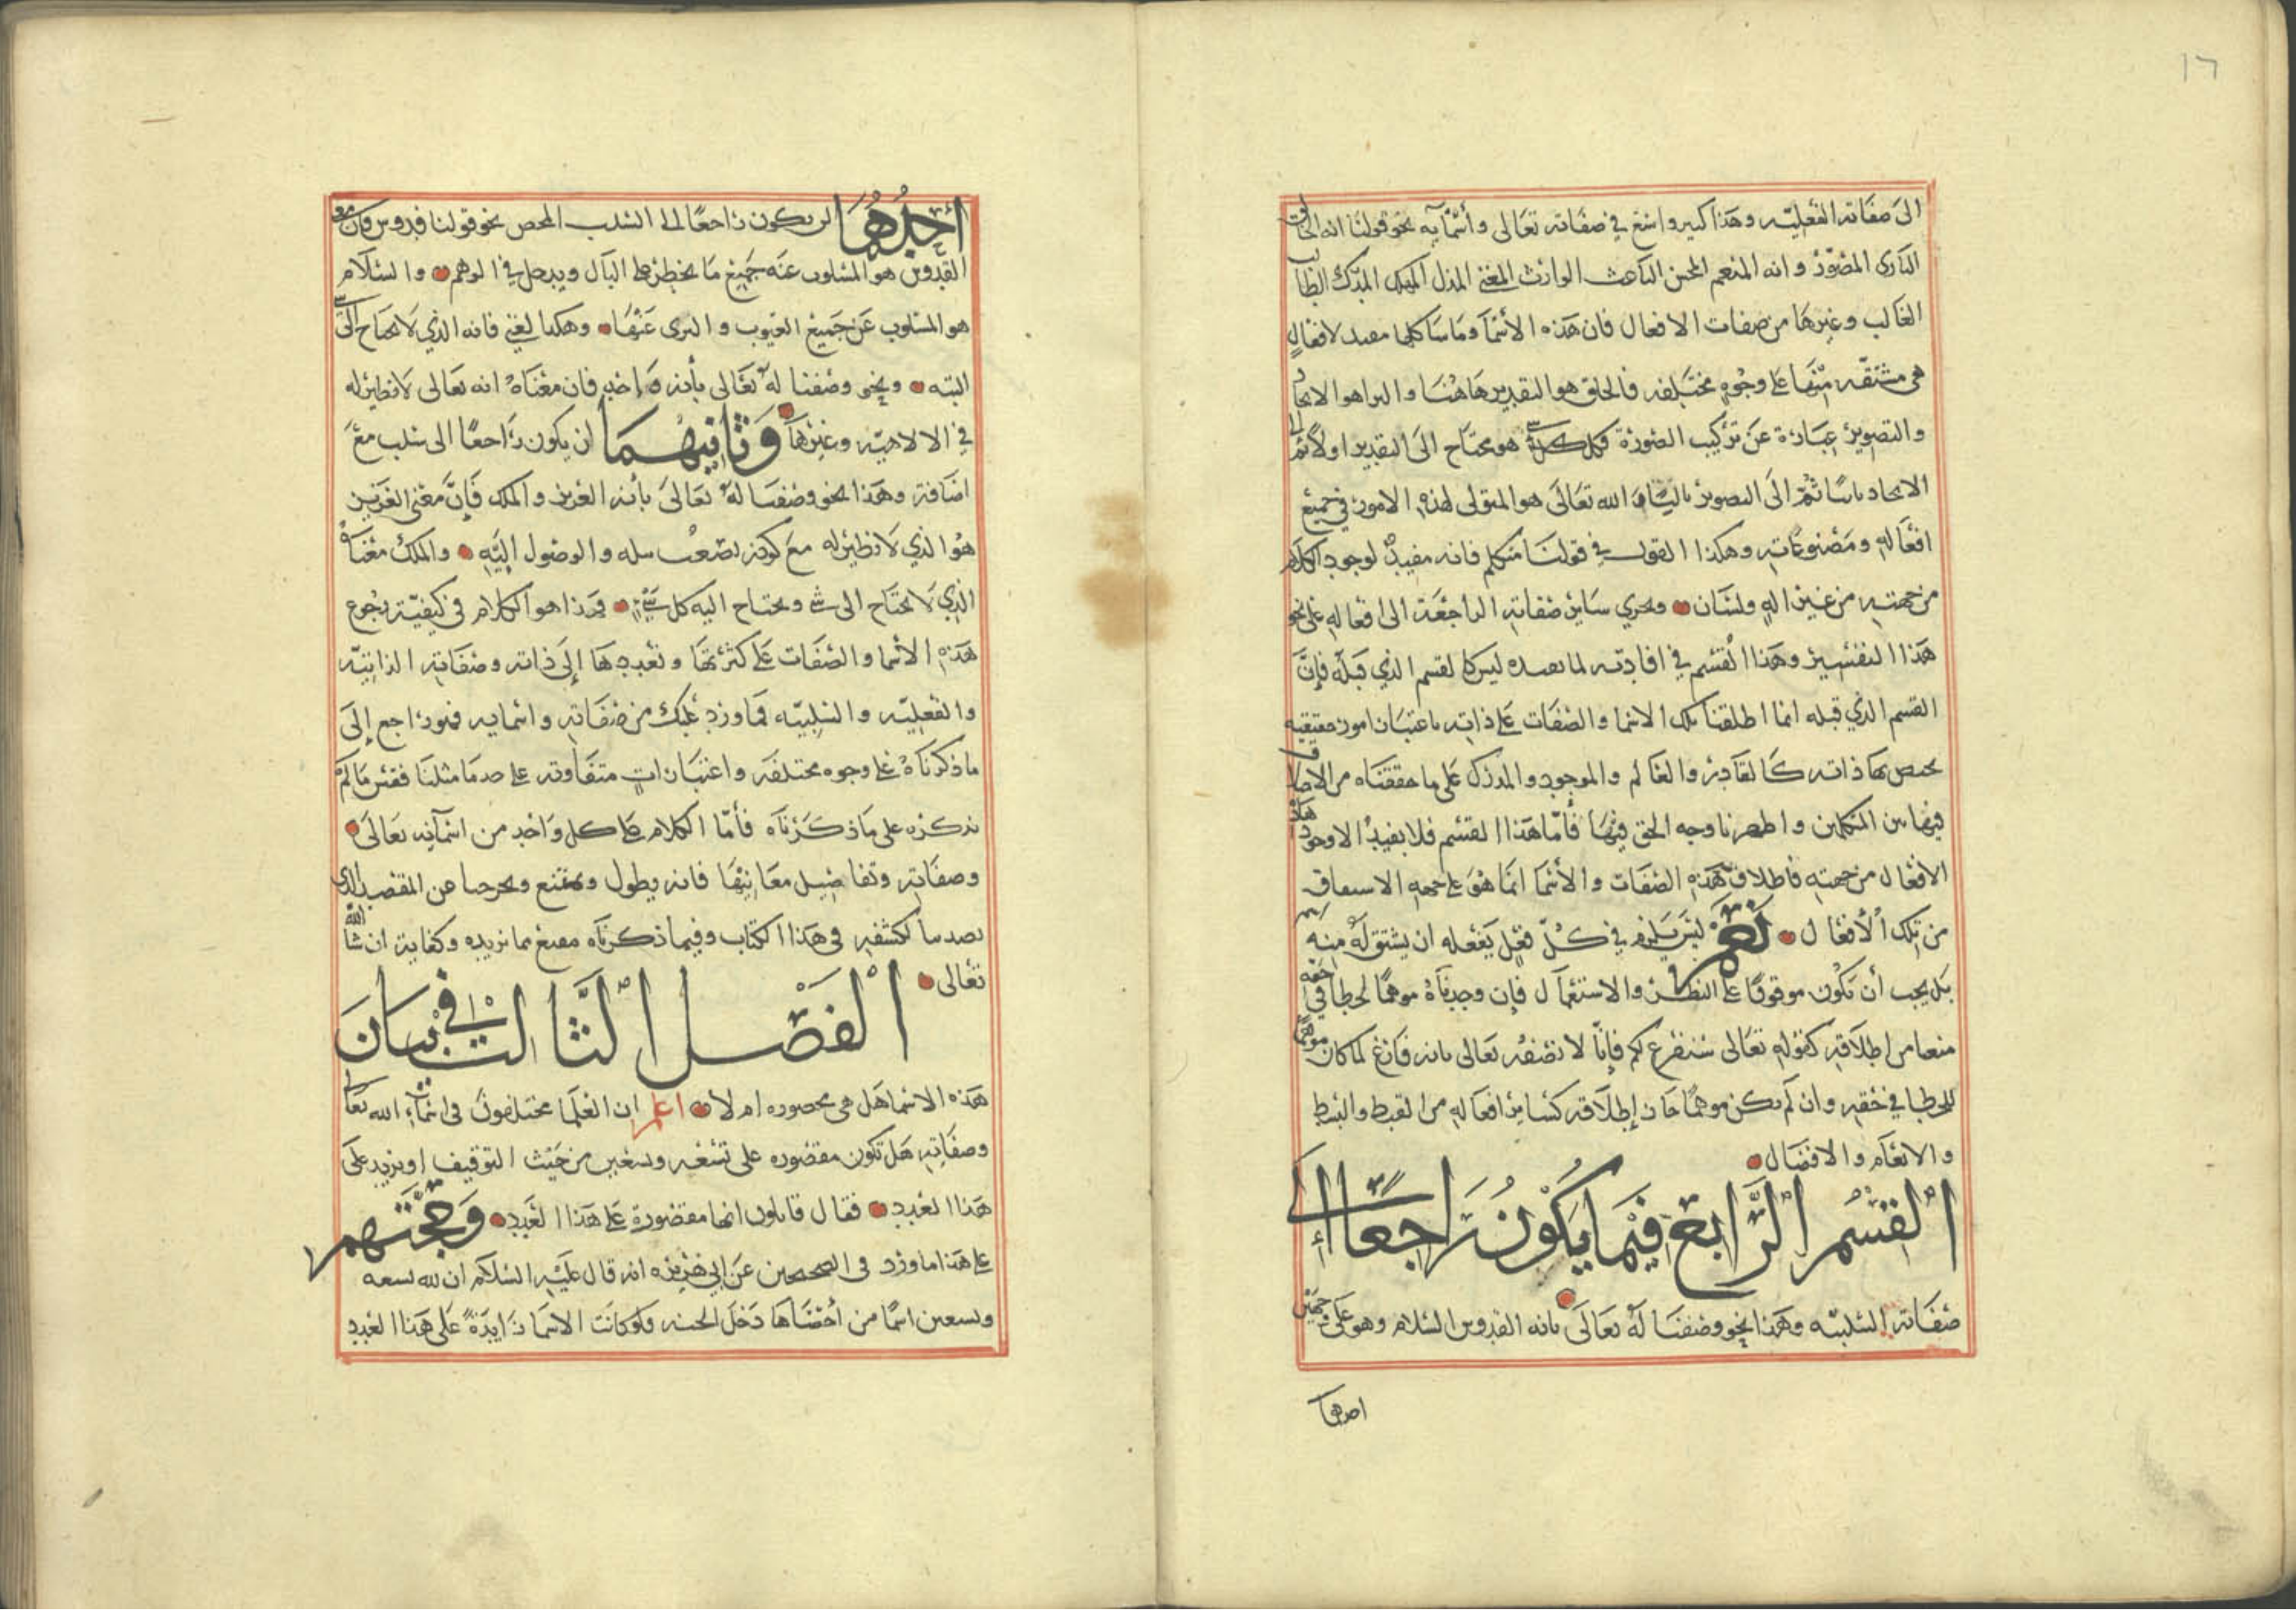 ١٦
الى صفاته الفعليّه وهذا كبير واسع في صفاته تعالى وأسمآيه نحو قولنا انه الخالق
البارى المصوّر وانه المنعم المحسن الباعث الوارث المغني المذل المهلك المدرك الطالب
الغالب وغيرها من صفات الافعال فان هذه الأسما وما ساكلها مفيد لافعالٍ
هى مشتقّه منها على وجوهٍ مختلفه فالخلق هو التقدير هاهنا والبرا هو الايجاد
والتصوير عبارة عن تركيب الصّورة فكل هو محتاج الى التقدير اولًا ثم الى
الايجاد ثانيًا ثم الى التصوير ثالثًا والله تعالى هو المتولى لهذه الامور في جميع
افعاله ومصنوعاته وهكذا القول في قولنا متكلم فانه مفيدٌ لوجود الكلام
من جهته من غير الهٍ ولسان ويجري ساير صفاته الراجعة الى افعاله على نحو
هذا التفسير وهذا القسم في افادته لما نعده ليس كالقسم الذي قبله فإنّ
القسم الذي قبله انما اطلقنا تلك الاسما والصّفات على ذاته باعتبار امور حقيقيه
يختص بها ذاته كالقادر والعالم والموجود والمدرك على ما حققناه من الاختلاف
فيها بين المتكلمين واظهرنا وجه الحق فيها فأمّا هذا القسم فلا يفيدُ الا وجود هذه
الافعال من جهته فاطلاق هذه الصّفات والأسما انما هو على جهة الاشتقاق
من تلك الأفعال نعم ليس يلزم في كلّ فعل يفعله ان يشتق له منه اسم
بل يجب أن تكون موقوفًا على النظر والاستعمال فإن وجدناه موهمًا لخطا في حقه
منعنا من اطلاقه كقوله تعالى سنفرغ لكم فإنّا لا نصفه تعالى بانه فارغ لما كان موهمًا
للخطا في حقه وان لم يكن موهمًا جاز إطلاقه كساير افعاله من القبط والبسط
والانعام والافضال
القسم الرّابع فيما يكون راجعًا الى
صفاته السّلبيّه وهذا نحو وصفنا لهُ تعالى بانه القدوس السّلام وهو على وجهين
احدهما
أحدُهُما ان يكون راجعًا الى السّلب المحض نحو قولنا قدوس فان معنى
القدوس هو المسلوب عنه جميع ما يخطر على البال ويدخل في الوهم والسّلام
هو المسلوب عن جميع العيوب والبرى عنها وهكذا لغني فانه الذي لا يحتاج الى شي
البتّه ونحو وصفنا له تعالى بأنه واحد فان معناهُ انه تعالى لا نظير له
في الالاهيّه وغيرها وثانيهما ان يكون راجعًا الى سلب مع
اضافة وهذا نحو وصفنا له تعالى بأنه العزيز والملك فإنّ معنى العزيز
هُوَ الذي لا نظير له مع كونه يصعب نيله والوصول إليه والملك معناه
الذي لا يحتاج الى شي ويحتاج اليه كل شيء فهذا هو الكلام في كيفيّة رجوع
هذه الأسما والصّفات على كثرتها وتعددها إلى ذاته وصفاته الذاتيّه
والفعليّه والسّلبيّه فما ورد عليك من صفاته واسمايه فهو راجع إلى
ما ذكرناهُ على وجوه مختلفه واعتبارات متفاوته على حد ما مثلنا فقس ما لم
نذكره على ما ذكرناه فأمّا الكلام على كل واحد من اسمآئه تعالى
وصفاته وتفاصيل معانيها فانه يطول ويمتنع ويخرجنا عن المقصد الذي
تصدينا لكشفه في هذا الكتاب وفيما ذكرناه مقنع مما نريده وكفاية ان شا الله
تعالى
الفصل الثالث في بيان
هذه الاسما هل هى محصوره ام لا اعلم ان العلما مختلفون في اسمآء الله تعالى
وصفاته هل تكون مقصوره على تسعه وتسعين من حيث التوقيف او يزيد على
هذا العدد فقال قايلون انها مقصورة على هذا العدد وحجّتهم
على هذا ما ورد في الصحيحين عن ابي هريره انه قال عليه السّلام ان لله تسعه
وتسعين اسمًا من أحصاها دخل الجنه فلو كانت الاسما زايدةً على هذا العدد